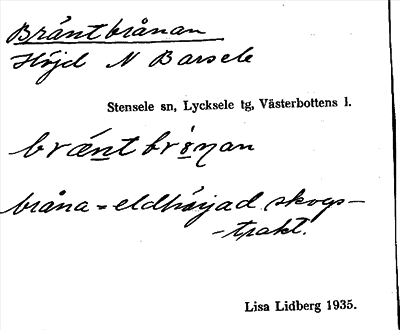 Bräntbrånan
Höjd N Barsele
Stensele sn, Lycksele tg, Västerbottens l.
bræntbrånan
bråna = eldhärjad skogs-
-trakt.
Lisa Lidberg 1935.